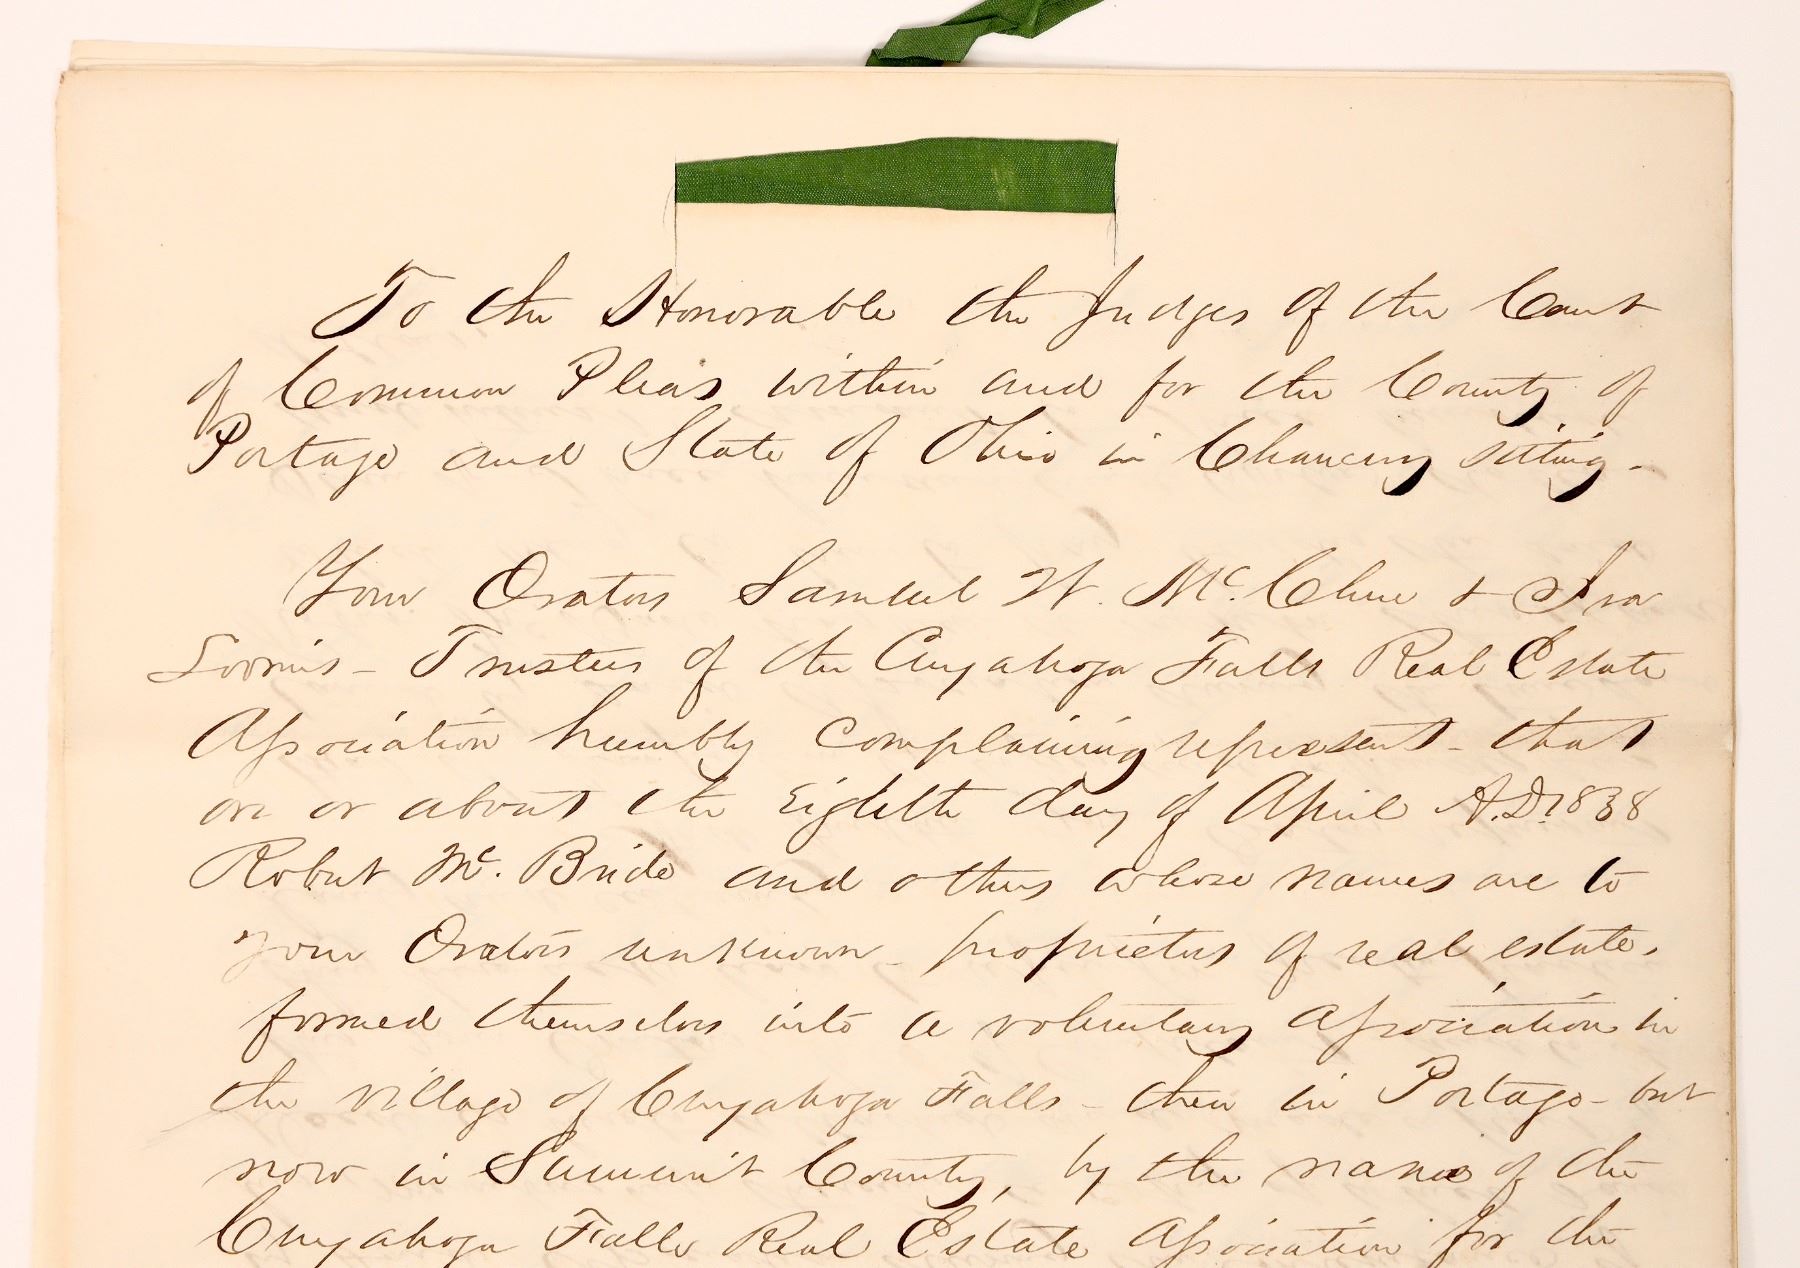 To the Honorable the Judges of the Court
of Common Pleas within and for the County of
Portage and State of Ohio in Chancery sitting -
Your Orators Samuel W. McClure & Ira
Loomis - Trustees of the Cuyahoga Falls Real Estate
Association humbly complaining represent - that
on or about the Eighth day of April A.D. 1838
Robert Mc. Bride and others whose names are to
your Orators unknown - proprietors of real estate,
formed themselves into a voluntary Association in
the village of Cuyahoga Falls - then in Portage - but
now in Summit County, by the name of the
Cuyahoga Falls Real Estate Association for the